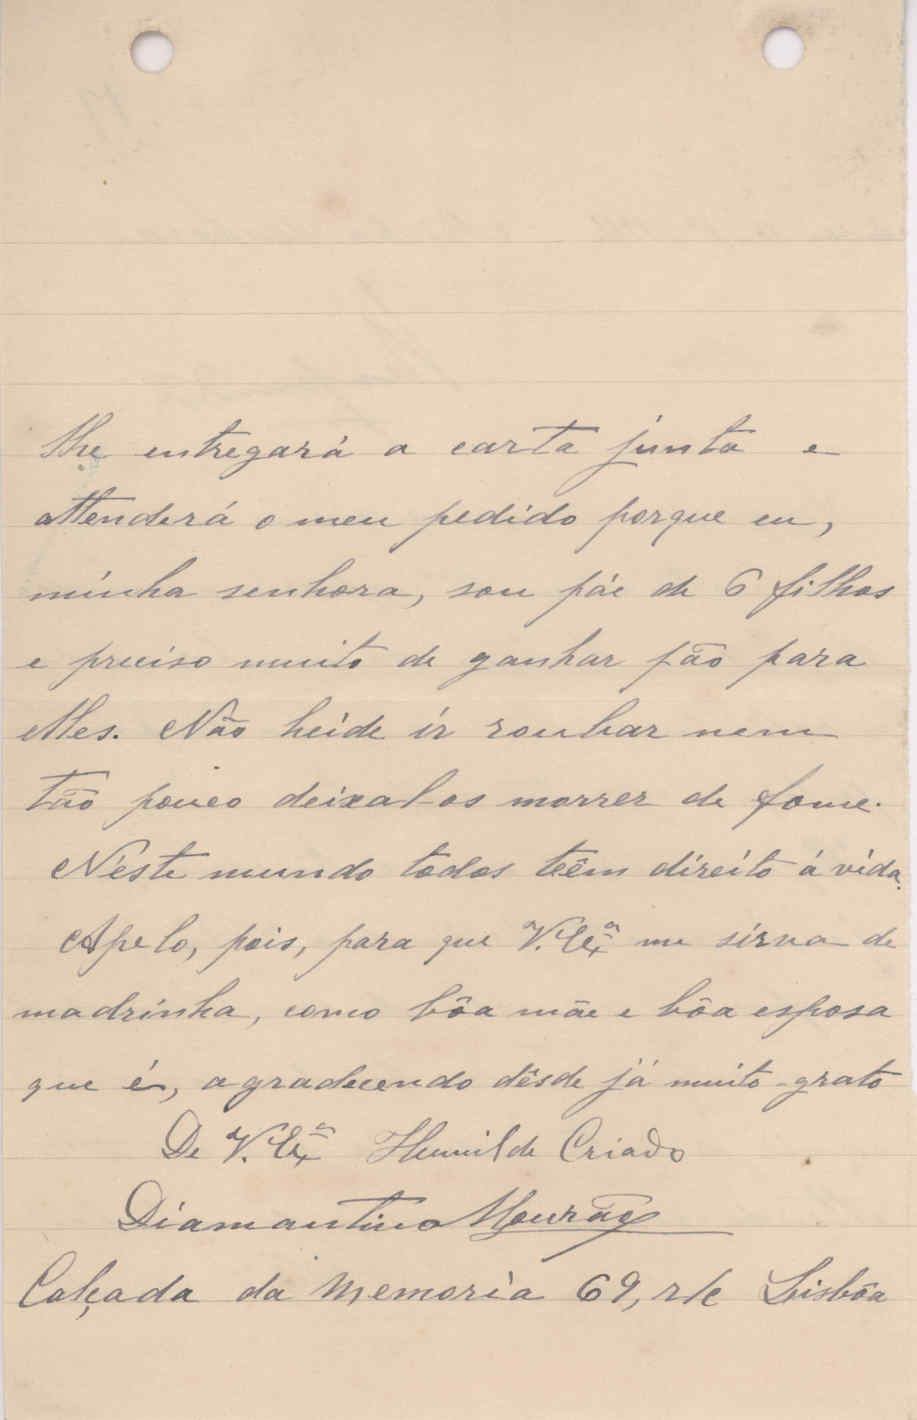 lhe entregará a carta junta e
attenderá o meu pedido porque eu,
minha senhora, sou páe de 6 filhos
e preciso muito de ganhar pão para
elles. Não heide ir roubar nem
tão pouco deixal-os morrer de fome.
N'éste mundo todos teêm direito á vida.
Apelo, pois, para que V. Exª me sirva de
madrinha, como bôa mãe e bôa esposa
que é, agradecendo dêsde já muito grato
De V. Exª Humilde Criado
Diamantino Mourão
Calçada da Memoria 69, r/c Lisbôa